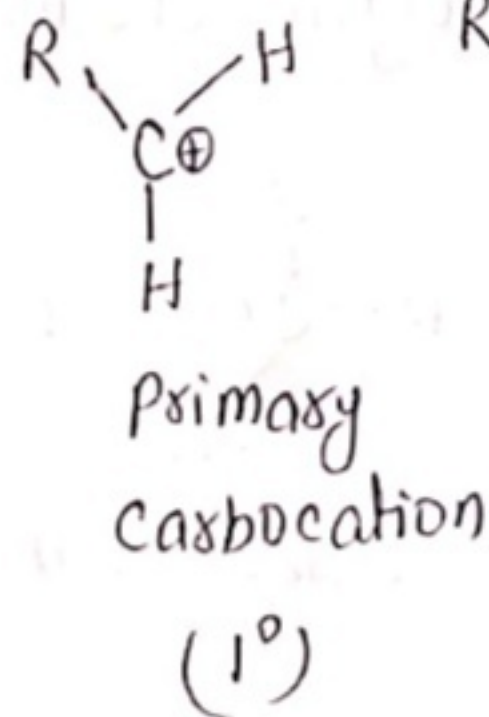 R H R
C⊕
H
Primary
carbocation
(1°)